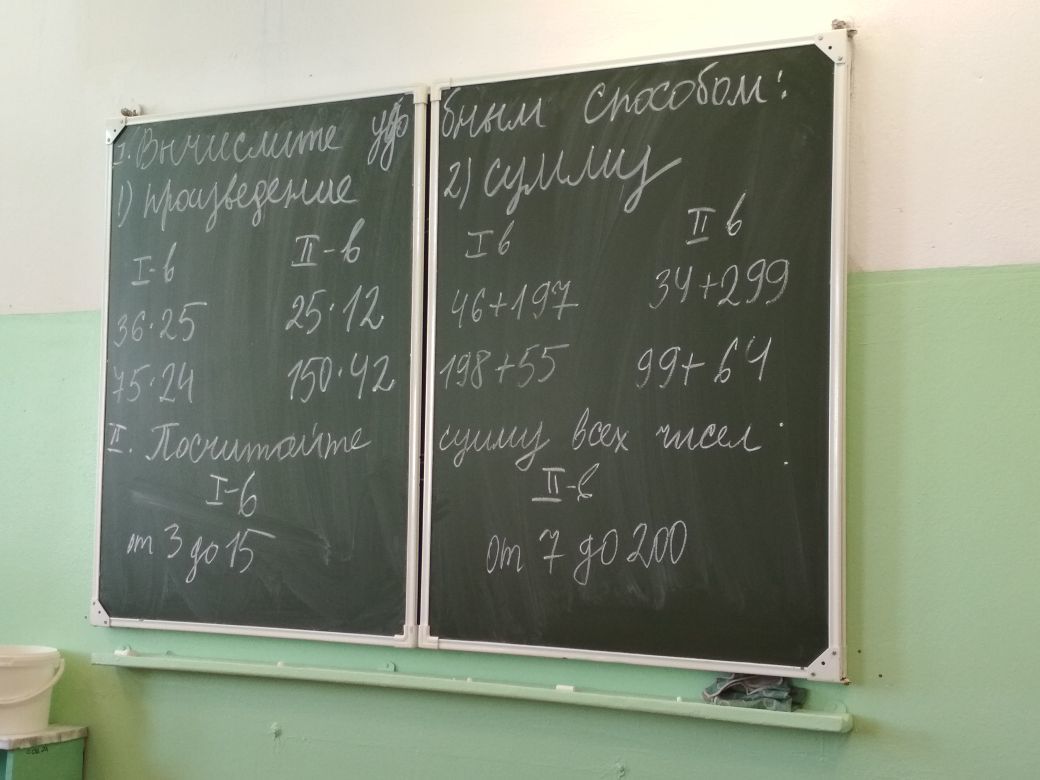 I. Вычислите удобным способом:
1) произведение 2) сумму
I-в II-в I в II в
36·25 25·12 46+197 34+299
75·24 150·42 198+55 99+64
II. Посчитайте сумму всех чисел:
I-в II-в
от 3 до 15 от 7 до 200